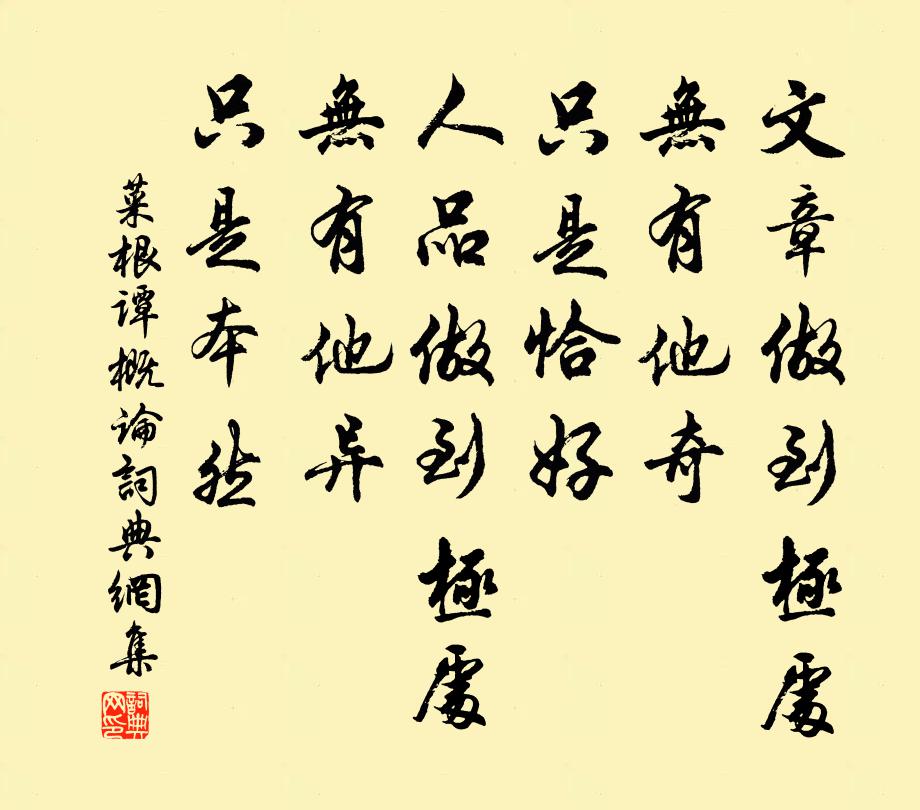 文章做到極處
無有他奇
只是恰好
人品做到極處
無有他异
只是本然
菜根譚概論詞典網集
詞典
网印